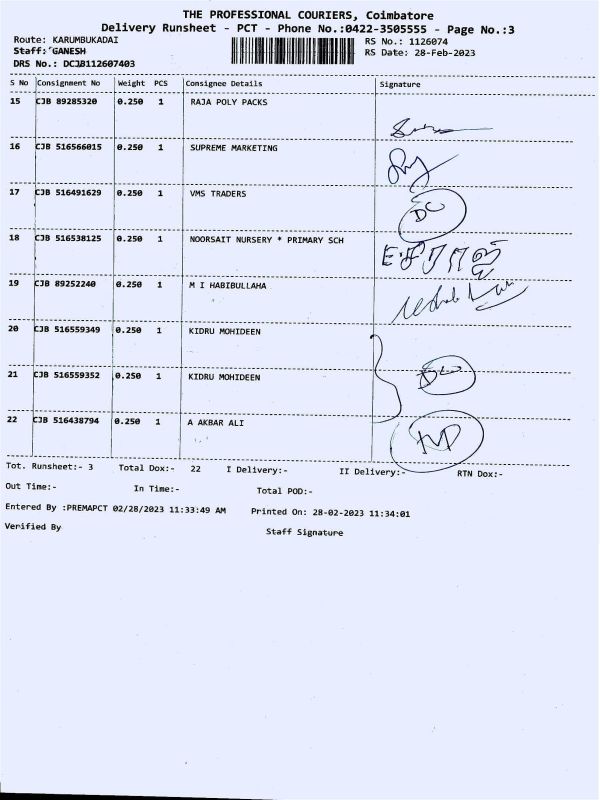 THE PROFESSIONAL COURIERS, Coimbatore
Delivery Runsheet - PCT - Phone No.:0422-3505555 - Page No.:3
Route: KARUMBUKADAI RS No.: 1126074
Staff: GANESH RS Date: 28-Feb-2023
DRS No.: DCJB112607403
S No Consignment No Weight PCS Consignee Details Signature
15 CJB 89285320 0.250 1 RAJA POLY PACKS
16 CJB 516566015 0.250 1 SUPREME MARKETING
17 CJB 516491629 0.250 1 VMS TRADERS DC
18 CJB 516538125 0.250 1 NOORSAIT NURSERY * PRIMARY SCH
19 CJB 89252240 0.250 1 M I HABIBULLAHA
20 CJB 516559349 0.250 1 KIDRU MOHIDEEN
21 CJB 516559352 0.250 1 KIDRU MOHIDEEN
22 CJB 516438794 0.250 1 A AKBAR ALI
Tot. Runsheet:- 3 Total Dox:- 22 I Delivery:- II Delivery:- RTN Dox:-
Out Time:- In Time:- Total POD:-
Entered By :PREMAPCT 02/28/2023 11:33:49 AM Printed On: 28-02-2023 11:34:01
Verified By Staff Signature